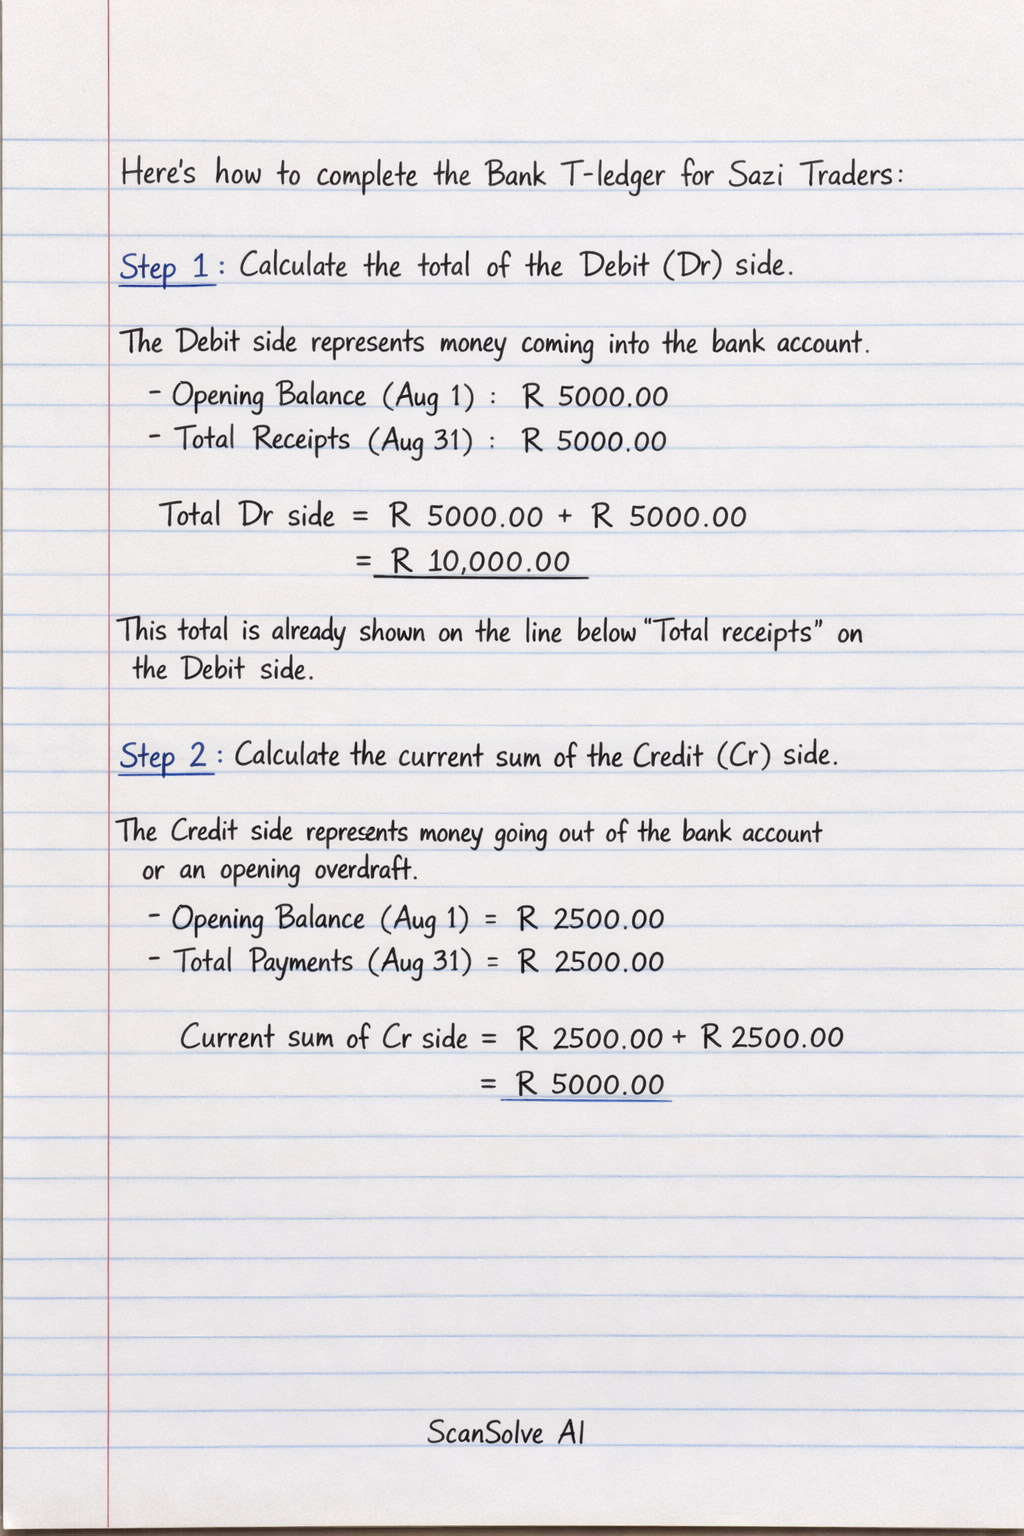 Here's how to complete the Bank T-ledger for Sazi Traders:
Step 1: Calculate the total of the Debit (Dr) side.
The Debit side represents money coming into the bank account.
- Opening Balance (Aug 1) : R 5000.00
- Total Receipts (Aug 31) : R 5000.00
Total Dr side = R 5000.00 + R 5000.00
= R 10,000.00
This total is already shown on the line below "Total receipts" on
the Debit side.
Step 2: Calculate the current sum of the Credit (Cr) side.
The Credit side represents money going out of the bank account
or an opening overdraft.
- Opening Balance (Aug 1) = R 2500.00
- Total Payments (Aug 31) = R 2500.00
Current sum of Cr side = R 2500.00 + R 2500.00
= R 5000.00
ScanSolve AI